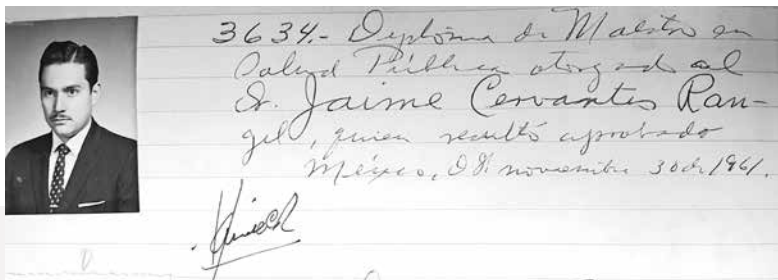 3634.- Diploma de Maestro en
Salud Pública otorgado al
Dr. Jaime Cervantes Ran-
gel, quien resultó aprobado
México, D.F. noviembre 30 de 1961.